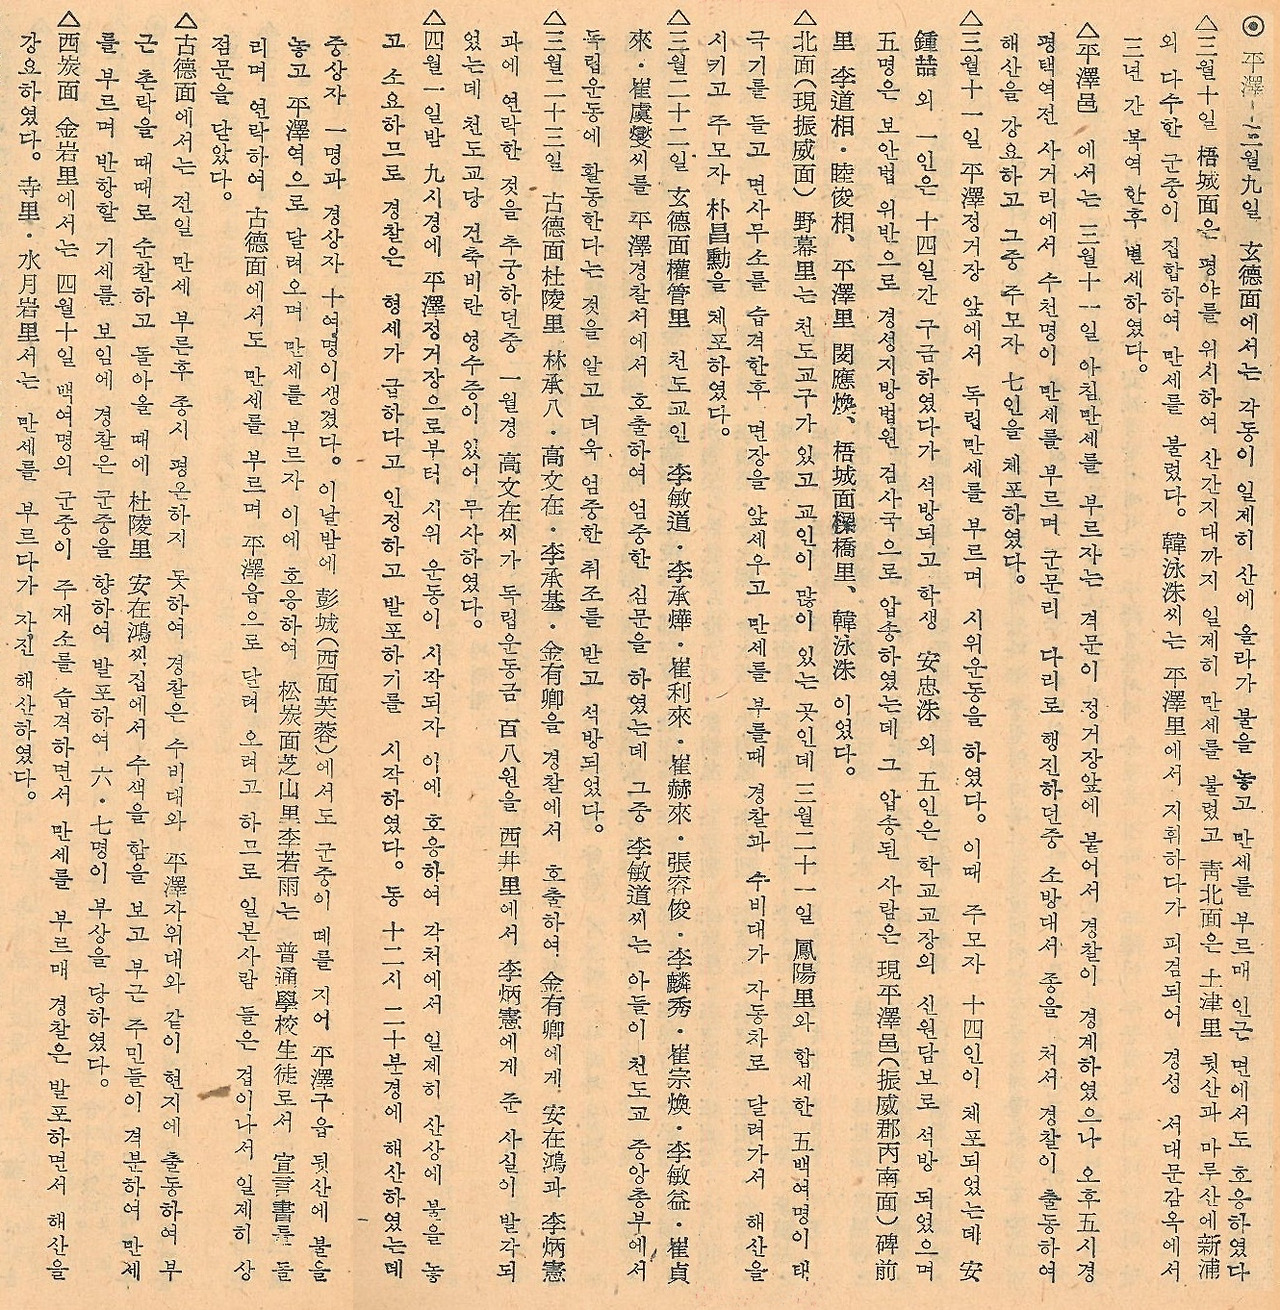 ◉ 平澤－三月九日 玄德面에서는 각동이 일제히 산에 올라가 불을 놓고 만세를 부르매 인근 면에서도 호응하였다
△三月十日 梧城面은 평야를 위시하여 산간지대까지 일제히 만세를 불렀고 靑北面은 土津里 뒷산과 마루산에 新浦
외 다수한 군중이 집합하여 만세를 불렀다. 韓泳洙씨는 平澤里에서 지휘하다가 피검되어 경성 서대문감옥에서
三년 간 복역 한후 별세하였다.
△平澤邑 에서는 三月十一日 아침만세를 부르자는 격문이 정거장앞에 붙어서 경찰이 경계하였으나 오후五시경
평택역전 사거리에서 수천명이 만세를 부르며 군문리 다리로 행진하던중 소방대서 종을 처서 경찰이 출동하여
해산을 강요하고 그중 주모자 七인을 체포하였다.
△三月十一日 平澤정거장 앞에서 독립만세를 부르며 시위운동을 하였다. 이때 주모자 十四인이 체포되었는데 安
鍾喆 외 一인은 十四일간 구금하였다가 석방되고 학생 安忠洙 외 五인은 학교교장의 신원담보로 석방 되었으며
五명은 보안법 위반으로 경성지방법원 검사국으로 압송하였는데 그 압송된 사람은 現平澤邑(振威郡丙南面) 碑前
里 李道相・睦俊相、平澤里 閔應煥、梧城面 橋里、韓泳洙 이었다.
△北面(現振威面) 野幕里는 천도교구가 있고 교인이 많이 있는 곳인데 三月二十一일 鳳陽里와 합세한 五백여명이 태
극기를 들고 면사무소를 습격한후 면장을 앞세우고 만세를 부를때 경찰과 수비대가 자동차로 달려가서 해산을
시키고 주모자 朴昌勳을 체포하였다.
△三月二十二일 玄德面權管里 천도교인 李敏道・李承燁・崔利來・崔赫來・張容俊・李麟秀・崔宗煥・李敏益・崔貞
來・崔虞燮씨를 平澤경찰서에서 호출하여 엄중한 심문을 하였는데 그중 李敏道씨는 아들이 천도교 중앙총부에서
독립운동에 활동한다는 것을 알고 더욱 엄중한 취조를 받고 석방되었다.
△三月二十三일 古德面杜陵里 林承八・高文在・李承基・金有卿을 경찰에서 호출하여 金有卿에게 安在鴻과 李炳憲
과에 연락한 것을 추궁하던중 一월경 高文在씨가 독립운동금 百八원을 西井里에서 李炳憲에게 준 사실이 발각되
었는데 천도교당 건축비란 영수증이 있어 무사하였다.
△四월一일밤 九시경에 平澤정거장으로부터 시위 운동이 시작되자 이에 호응하여 각처에서 일제히 산상에 불을 놓
고 소요하므로 경찰은 형세가 급하다고 인정하고 발포하기를 시작하였다. 동 十二시 二十분경에 해산하였는데
중상자 一명과 경상자 十여명이생겼다. 이날밤에 彭城(西面芙蓉)에서도 군중이 떼를 지어 平澤구읍 뒷산에 불을
놓고 平澤역으로 달려오며 만세를 부르자 이에 호응하여 松炭面芝山里李若雨는 普通學校生徒로서 宣言書를 돌
리며 연락하여 古德面에서도 만세를 부르며 平澤읍으로 달려 오려고 하므로 일본사람 들은 겁이나서 일제히 상
점문을 닫았다.
△古德面에서는 전일 만세 부른후 종시 평온하지 못하여 경찰은 수비대와 平澤자위대와 같이 현지에 출동하여 부
근 촌락을 때때로 순찰하고 돌아올 때에 杜陵里 安在鴻씨집에서 수색을 함을 보고부근 주민들이 격분하여 만세
를 부르며 반항할 기세를 보임에 경찰은 군중을 향하여 발포하여 六・七명이 부상을 당하였다.
△西炭面 金岩里에서는 四월十일 백여명의 군중이 주재소를 습격하면서 만세를 부르매 경찰은 발포하면서 해산을
강요하였다. 寺里・水月岩里서는 만세를 부르다가 자진 해산하였다.